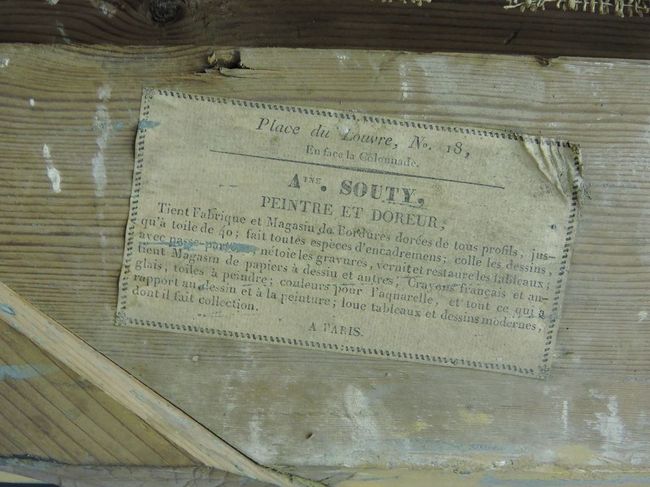 Place du Louvre, No. 18,
En face la Colonnade.
A^INE. SOUTY,
PEINTRE ET DOREUR,
Tient Fabrique et Magasin de Bordures dorées de tous profils, jus-
qu'à toile de 40; fait toutes espèces d'encadremens; colle les dessins,
avec passe-partout, nétoie les gravures, vernit et restaure les tableaux;
tient Magasin de papiers à dessin et autres; Crayons français et an-
glais, toiles à peindre; couleurs pour l'aquarelle, et tout ce qui a
rapport au dessin et à la peinture; loue tableaux et dessins modernes,
dont il fait collection.
A PARIS.